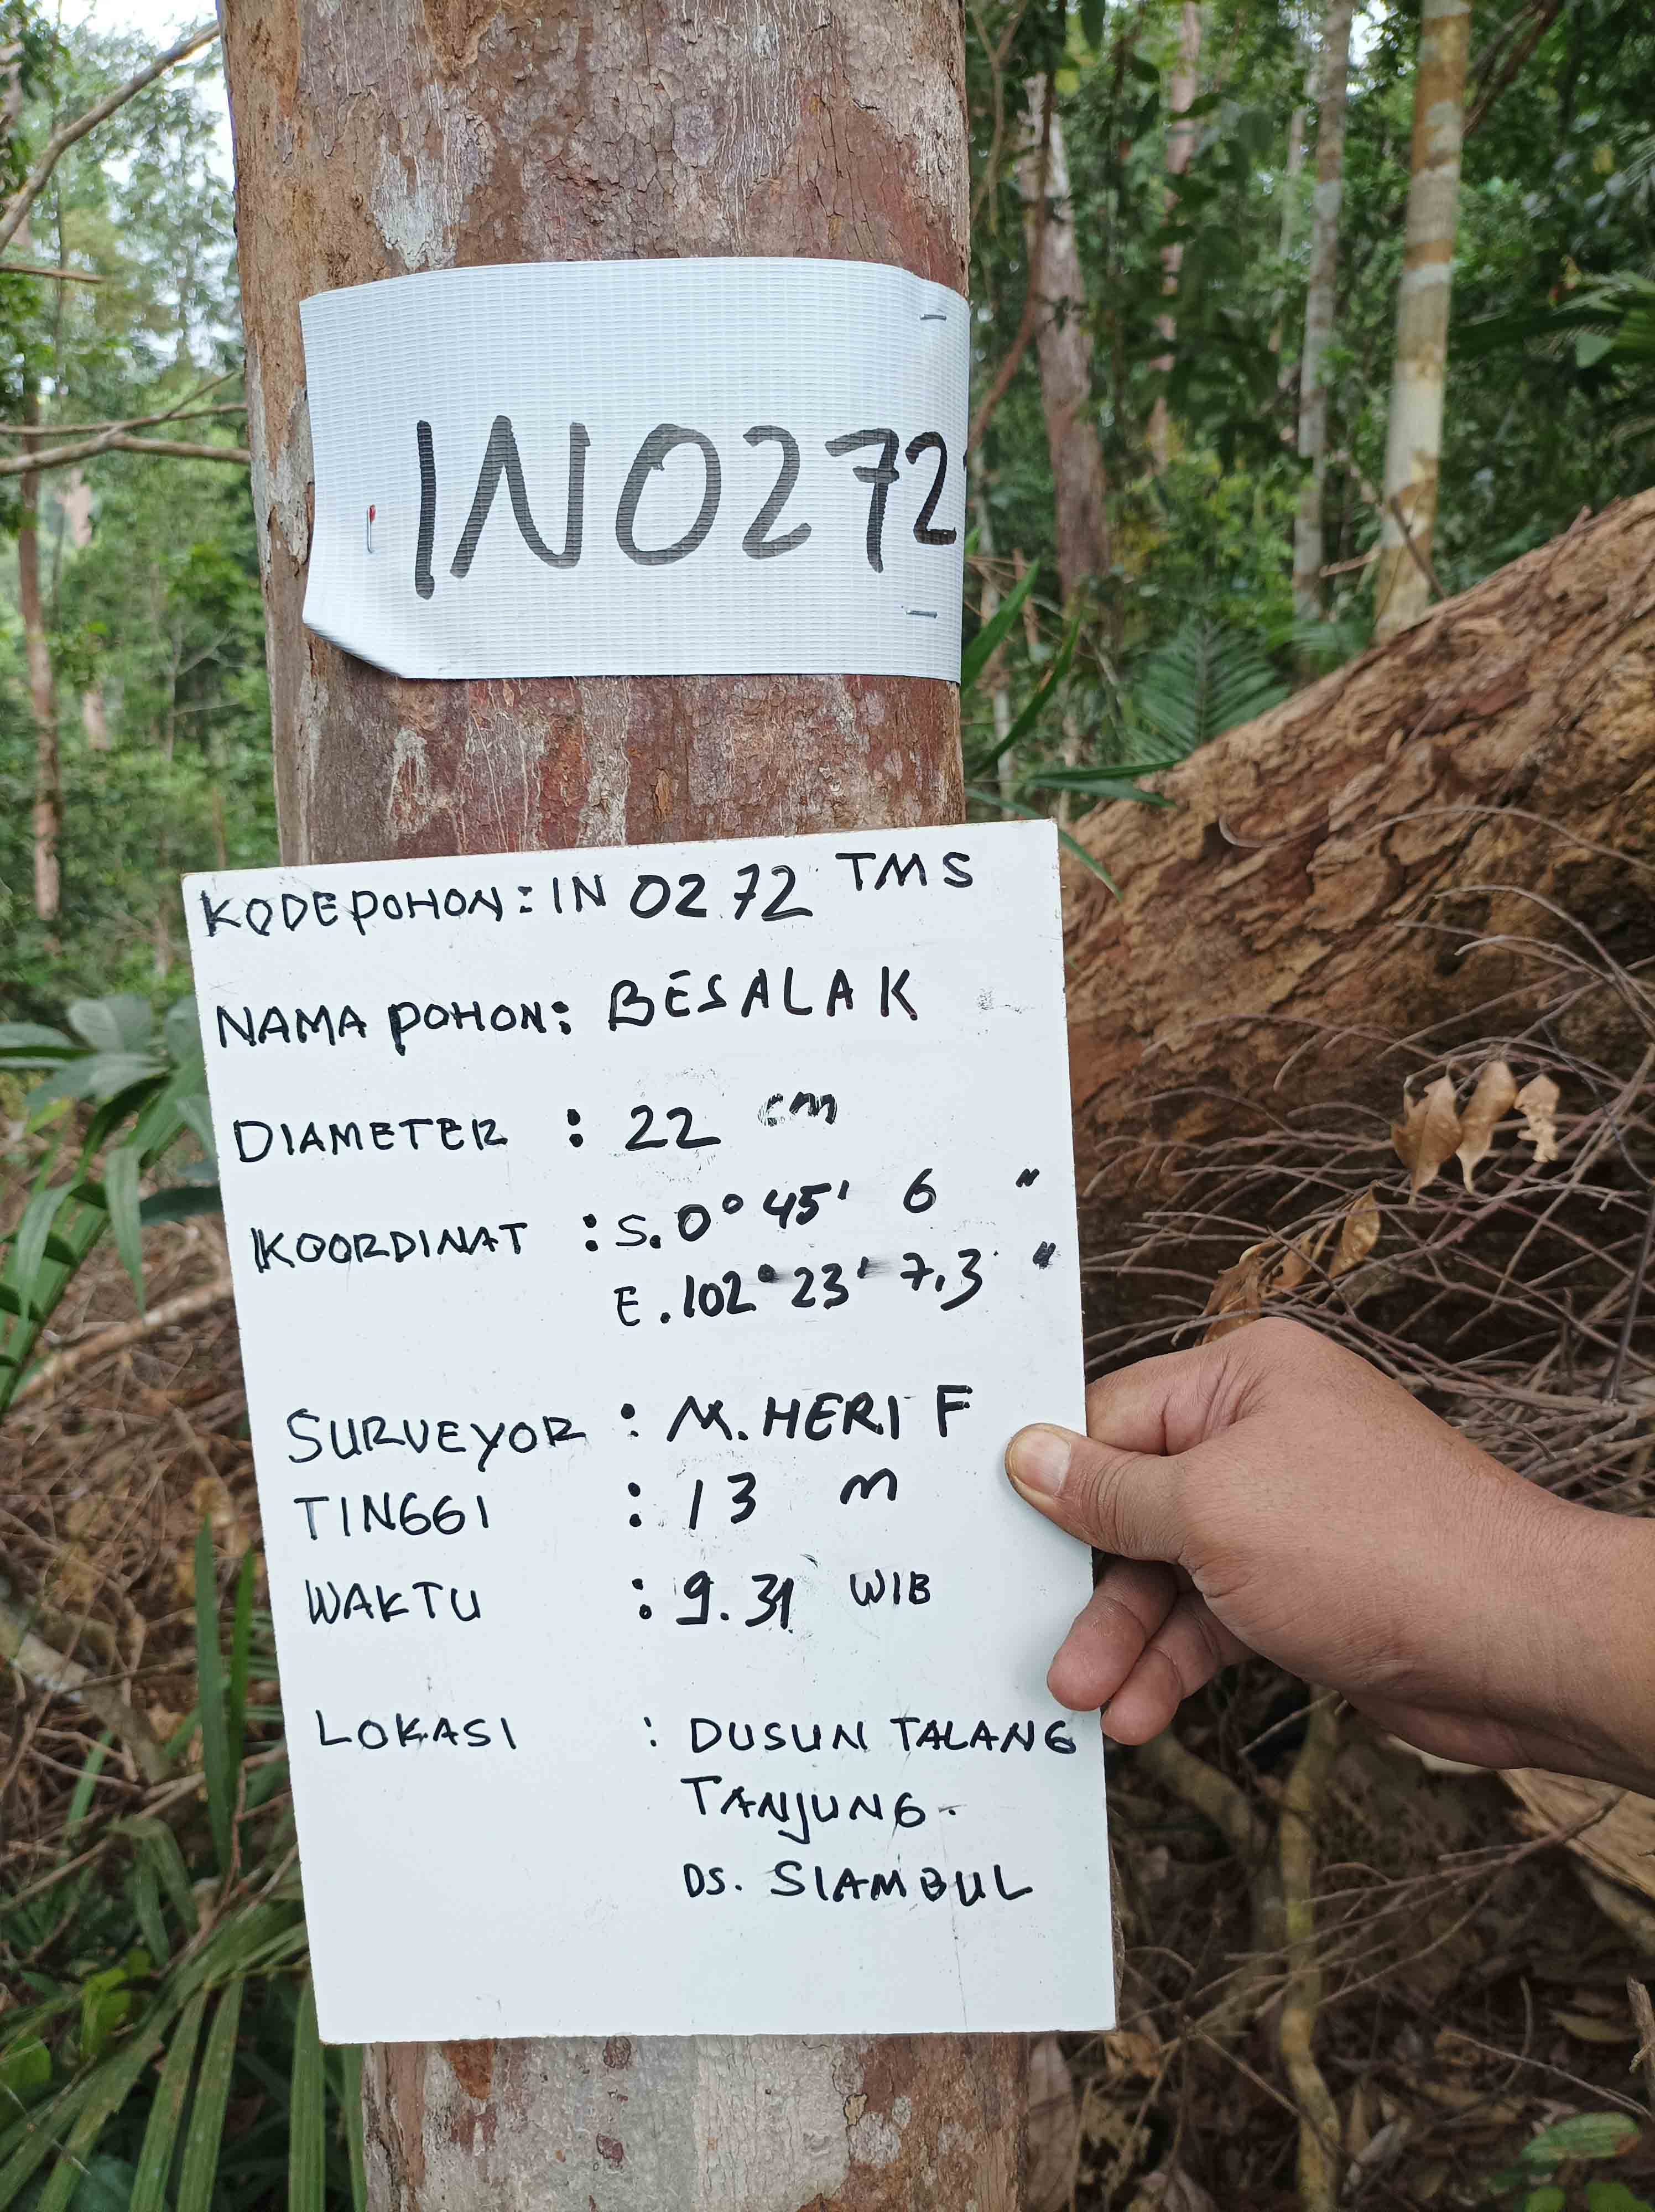 IN0272
KODE POHON : IN 0272 TMS
NAMA POHON : BESALAK
DIAMETER : 22 cm
KOORDINAT : S. 0° 45' 6 "
E. 102° 23' 7,3 "
SURVEYOR : M. HERI F
TINGGI : 13 m
WAKTU : 9.31 WIB
LOKASI : DUSUN TALANG
TANJUNG.
DS. SIAMBUL